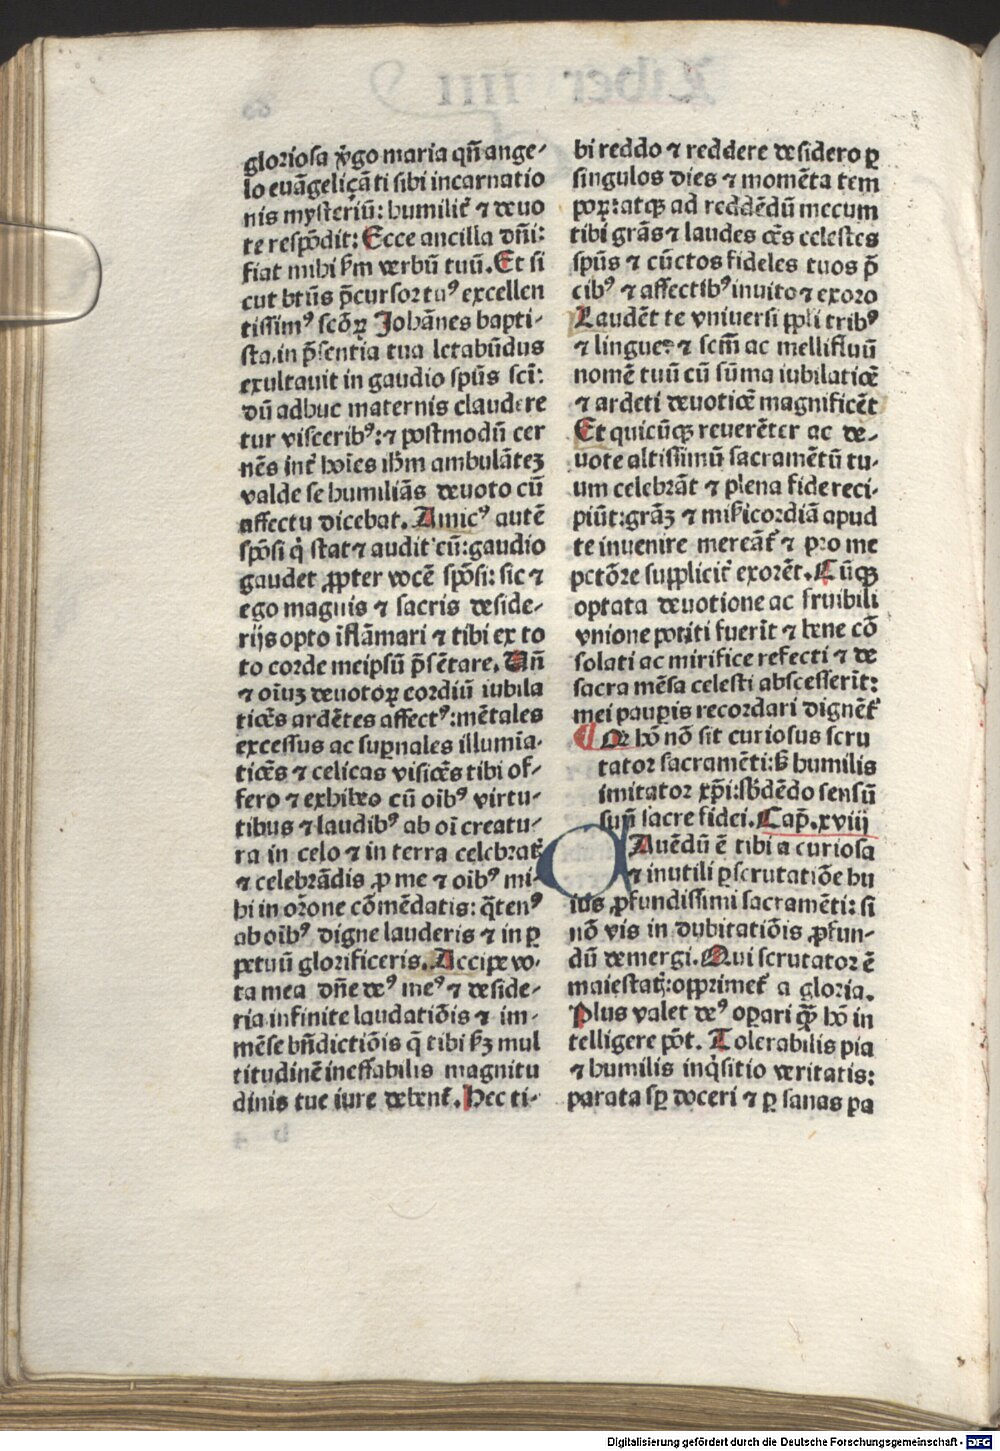 gloriosa v̓go maria qn̄ ange-
lo euāgeliçāti sibi incarnatio
nis mysteriū: humilit̓ ⁊ deuo
te respōdit: Ecce ancilla dn̄i:
fiat mihi ẜm verbū tuū. Et si
cut btūs p̄cursor tuꝰ excellen
tissimꝰ scōꝝ Johānes bapti-
sta.in p̄sentia tua letabūdus
exultauit in gaudio spūs scī:
dū adhuc maternis claudere
tur visceribꝰ: ⁊ postmodū cer
nēs int̓ hoīes ihm̄ ambulātez
valde se humiliās deuoto cū
affectu dicebat. Amicꝰ autē
spōsi q̇ stat ⁊ audit eū: gaudio
gaudet ꝓpter vocē spōsi: sic ⁊
ego magnis ⁊ sacris deside-
rijs opto īflāmari ⁊ tibi ex to
to corde meipsū p̄sētare. Vn̄
⁊ oīuꝫ deuotoꝝ cordiū iubila
tiōes ardētes affectꝰ: mētales
excessus ac suꝑnales illumīa-
tiōes ⁊ celicas visiōes tibi of-
fero ⁊ exhibeo cū oībꝰ virtu-
tibus ⁊ laudibꝰ ab oī creatu-
ra in celo ⁊ in terra celebrat̓
⁊ celebrādis ꝓ me ⁊ oībꝰ mi-
hi in or̄one cōmēdatis: q̄tenꝰ
ab oībꝰ digne lauderis ⁊ in ꝑ
petuū glorificeris. Accipe vo-
ta mea dn̄e deꝰ meꝰ ⁊ deside-
ria infinite laudatiōis ⁊ im-
mēse bn̄dictiōis q̄ tibi ẜꝫ mul
titudinē ineffabilis magnitu
dinis tue iure debent̓. Hec ti-
bi reddo ⁊ reddere desidero ꝑ
singulos dies ⁊ momēta tem
poꝝ: atqꝫ ad reddēdū mecum
tibi grās ⁊ laudes oēs celestes
spūs ⁊ cūctos fideles tuos p̄
cibꝰ ⁊ affectibꝰ inuito ⁊ exoro
Laudēt te vniuersi ppli tribꝰ
⁊ lingue: ⁊ scm̄ ac mellifluū
nomē tuū cū sūma iubilatiōe
⁊ ardēti deuotiōe magnificēt
Et quicūqꝫ reuerēter ac de-
uote altissimū sacramētū tu-
um celebrāt ⁊ plena fide reci-
piūt: grāꝫ ⁊ mi̅sicordiā apud
te inuenire mereāt̓ ⁊ pro me
pctōre supplicit̓ exorēt. Cūqꝫ
optata deuotione ac fruibili
vnione potiti fuerīt ⁊ bene cō
solati ac mirifice refecti ⁊ de
sacra mēsa celesti abscesserīt:
mei pauꝑis recordari dignēt̓
¶ Qꝛ hō nō sit curiosus scru
tator sacramēti: sꝫ humilis
imitator xp̄i: sb̓dēdo sensū
suū sacre fidei. Cap̄.xviij
CAuēdū ē tibi a curiosa
⁊ inutili ꝑscrutatiōe hu
ius ꝓfundissimi sacramēti: si
nō vis in dubitatiōis ꝓfun-
dū demergi. Qui scrutator ē
maiestat̓: opprimet̓ a gloria.
Plus valet deꝰ oꝑari qꝫ̄ hō in
telligere pōt. Tolerabilis pia
⁊ humilis inq̇sitio veritatis:
parata sꝑ doceri ⁊ ꝑ sanas pa
Digitalisierung gefördert durch die Deutsche Forschungsgemeinschaft - DFG